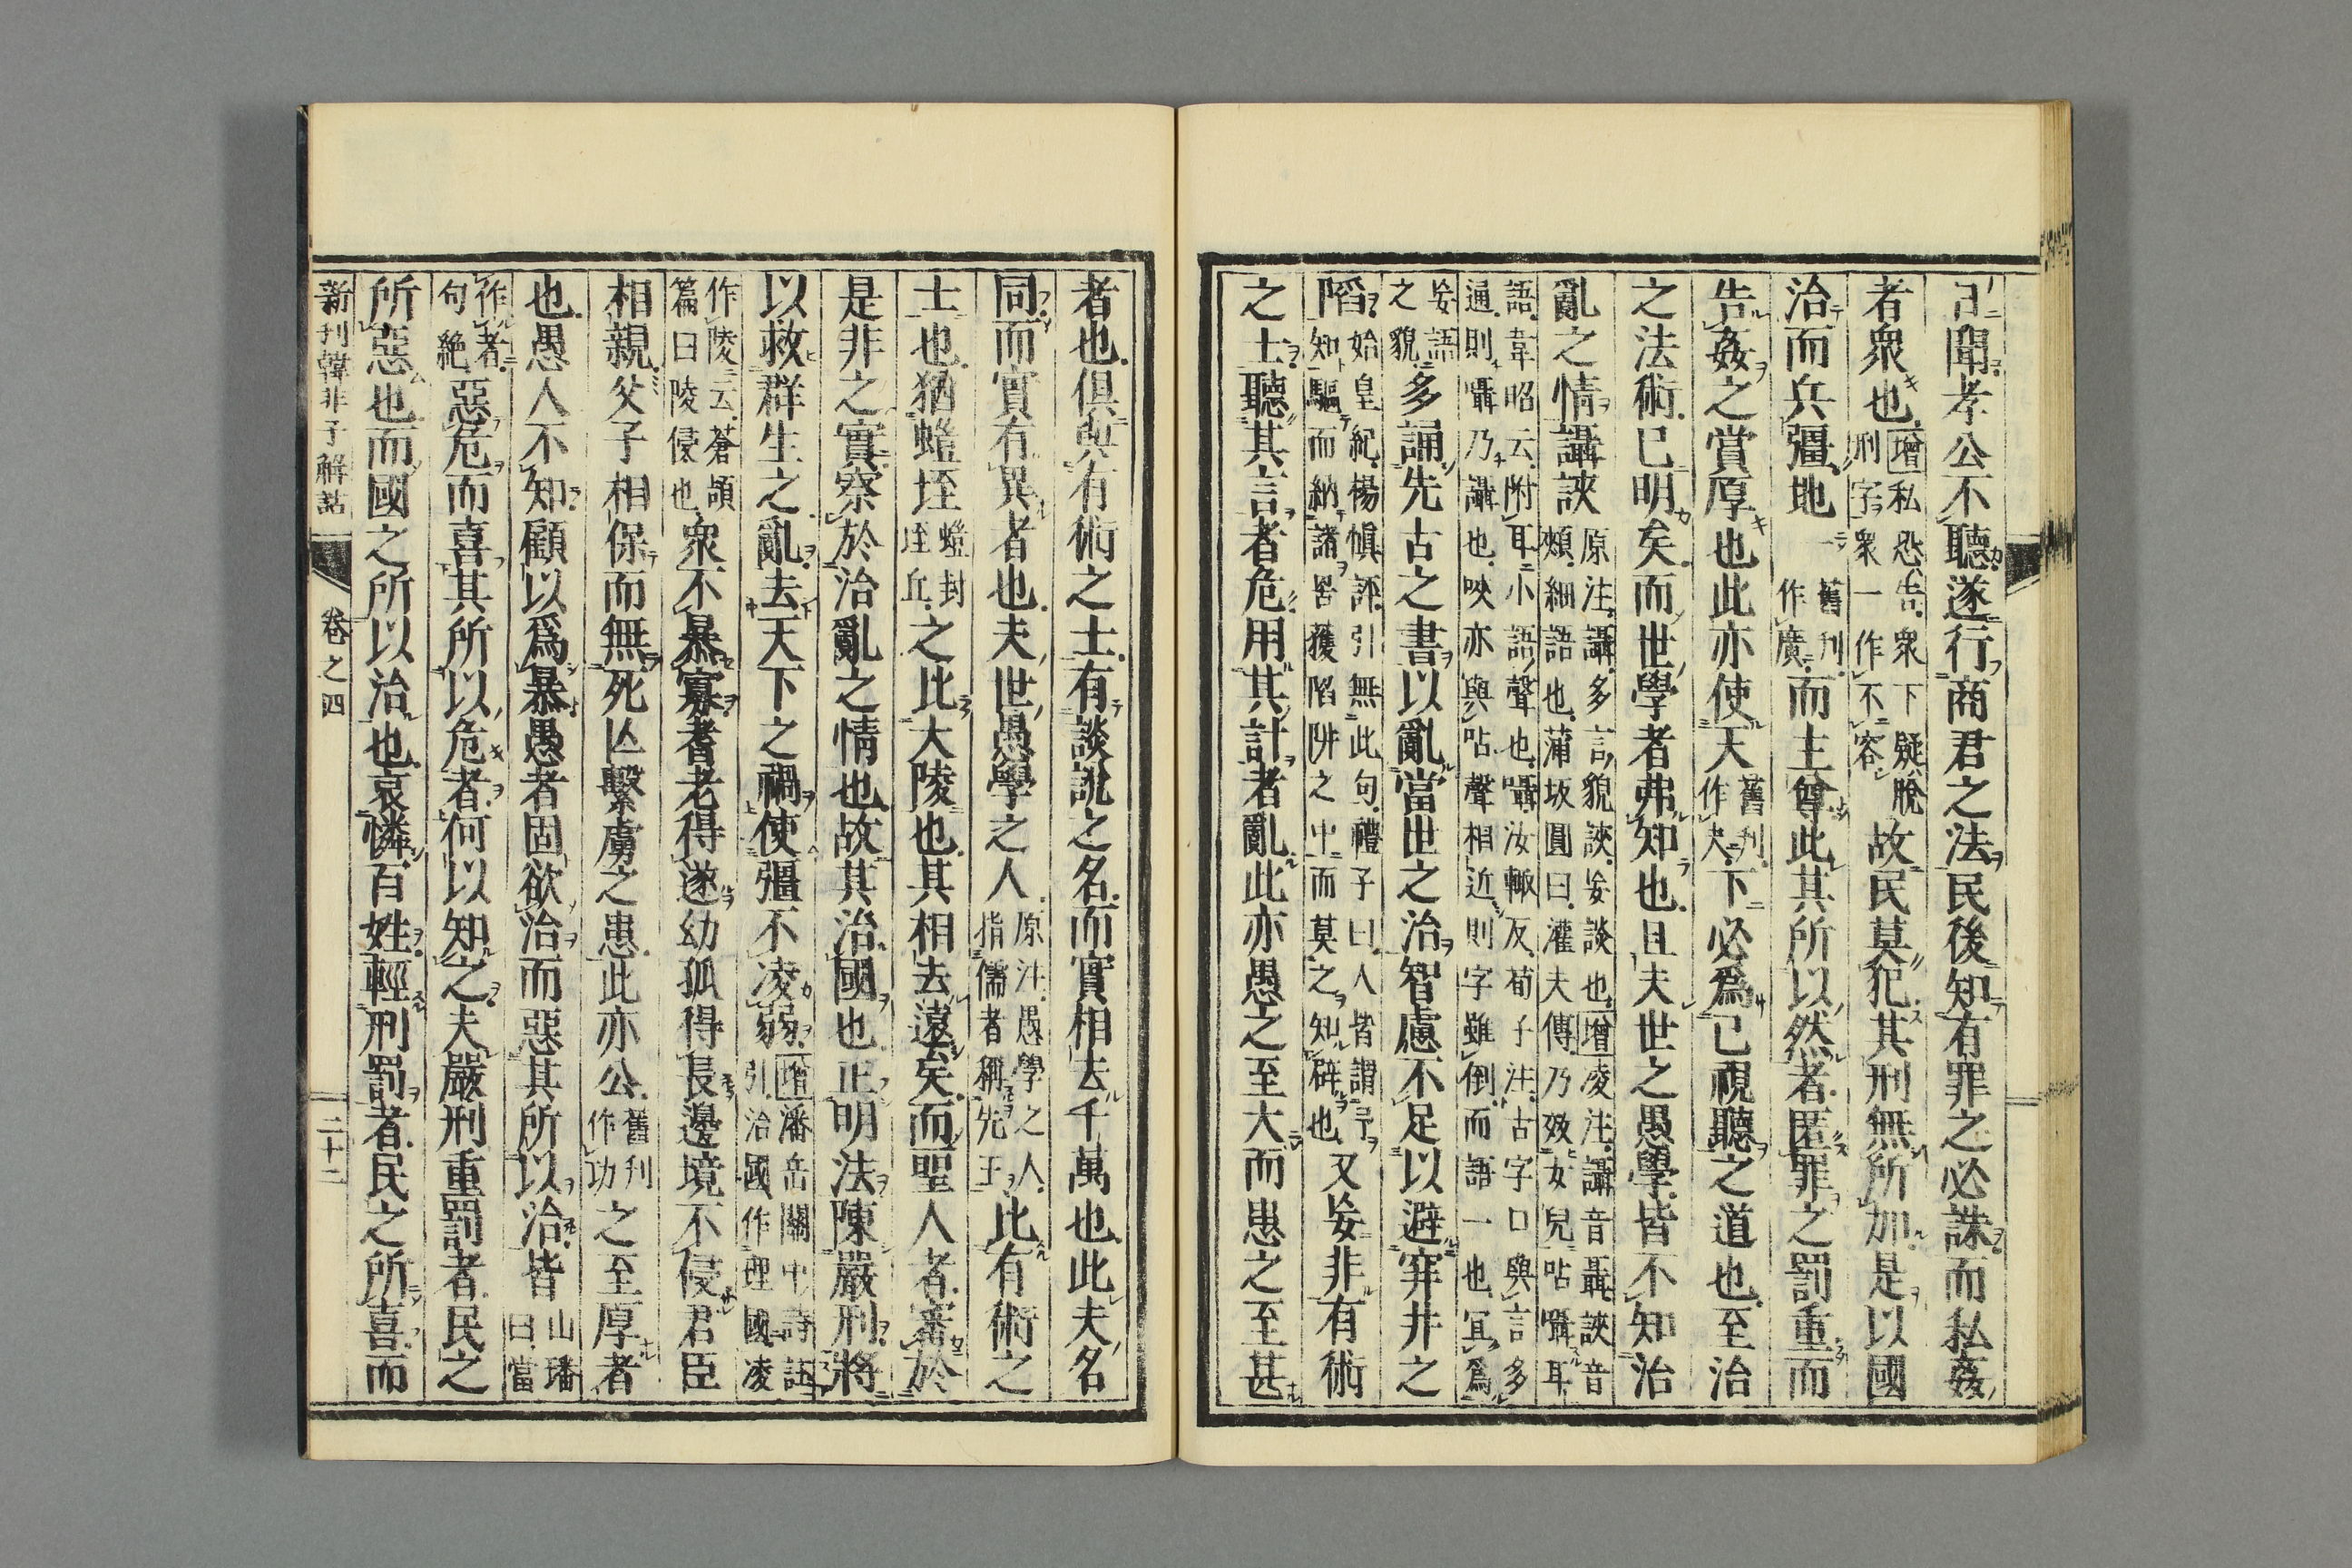 聞孝公不聽遂行商君之法民後知有罪之必誅而私姦
者衆也增私恐告衆下疑脫刑字衆一作不容故民莫犯其刑無所加是以國
治而兵彊地一舊刋作廣而主尊此其所以然者匿罪之罰重而
告姦之賞厚也此亦使天舊刋作夫下必爲已視聽之道也至治
之法術已明矣而世學者弗知也且夫世之愚學皆不知治
亂之情讘䛟原注讘多言貌䛟妄談也增凌注讘音聶䛟音
頰細語也蒲坂圓曰灌夫傳乃效女兒呫囁耳
語韋昭云附耳小語聲也囁汝輒反荀子注古字口與言多
通則囁乃讘也唊亦與呫聲相近則字雖倒而語一也冝爲
妄語之貌多誦先古之書以亂當世之治智慮不足以避穽井之
陷始皇紀楊愼評引無此句禮子曰人皆謂予知驅而納諸罟獲陷阱之中而莫之知辟也又妄非有術
之士聽其言者危用其計者亂此亦愚之至大而患之至甚
者也俱與有術之士有談說之名而實相去千萬也此夫名
同而實有異者也夫世愚學之人原注愚學之人指儒者稱先王此有術之
士也猶螘垤螘封垤丘之比大陵也其相去遠矣而聖人者審於
是非之實察於治亂之情也故其治國也正明法陳嚴刑將
以救群生之亂去天下之禍使彊不凌弱增潘岳關中詩註引治國作理國凌
作陵云蒼頡篇曰陵侵也衆不暴寡耆老得遂幼孤得長邊境不侵君臣
相親父子相保而無死亾繫虜之患此亦公舊刋作功之至厚者
也愚人不知顧以爲暴愚者固欲治而惡其所以治皆山璠曰當
作者句絶惡危而喜其所以危者何以知之夫嚴刑重罰者民之
所惡也而國之所以治也哀憐百姓輕刑罰者民之所喜而
新刊韓非子解詁 卷之四 二十二